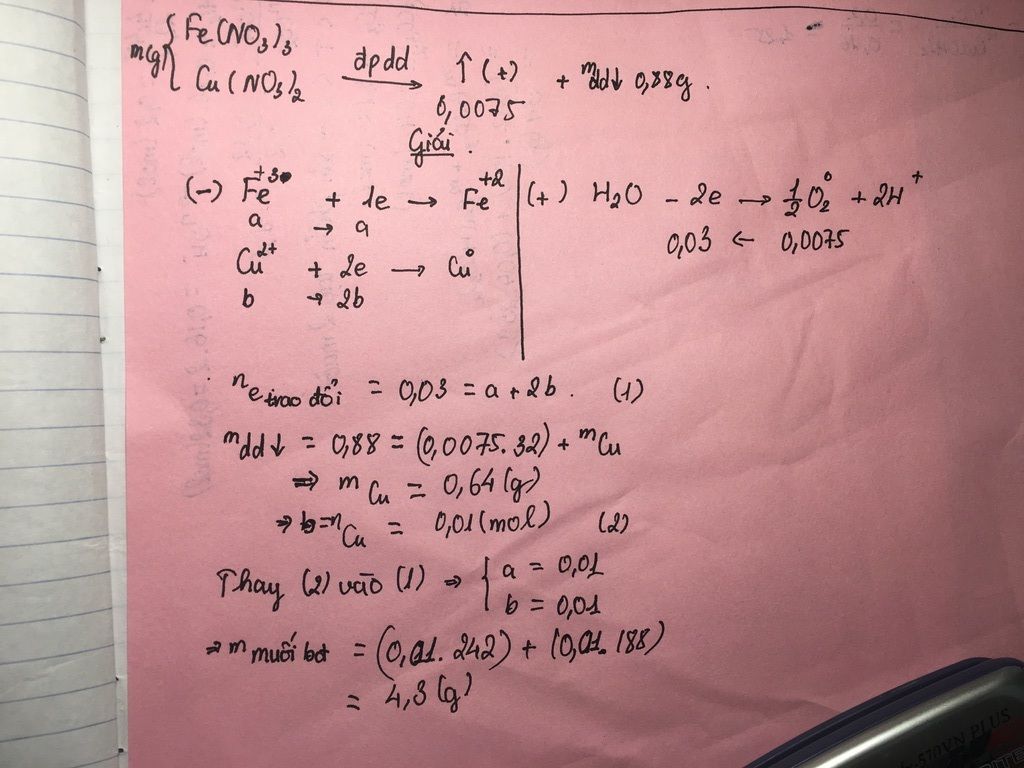 m(g) { Fe(NO₃)₃
Cu(NO₃)₂ đpdd → ↑ (+) + m dd↓ 0,88g.
0,0075
Giải.
(-) Fe⁺³ + 1e → Fe⁺²
a → a
Cu²⁺ + 2e → Cu⁰
b → 2b
(+) H₂O - 2e → ½O₂⁰ + 2H⁺
0,03 ← 0,0075
n e trao đổi = 0,03 = a + 2b. (1)
m dd↓ = 0,88 = (0,0075.32) + m Cu
⇒ m Cu = 0,64 (g)
⇒ b = n Cu = 0,01 (mol) (2)
Thay (2) vào (1) ⇒ { a = 0,01
b = 0,01
⇒ m muối bđ = (0,01.242) + (0,01.188)
= 4,3 (g)
570VN PLUS